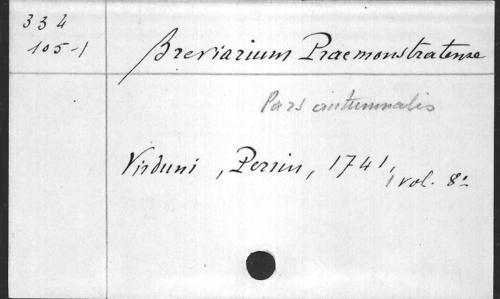 334
105-1
Breviarium Praemonstratense
Pars autumnalis
Virduni, Perrin, 1741,
1 vol. 8º